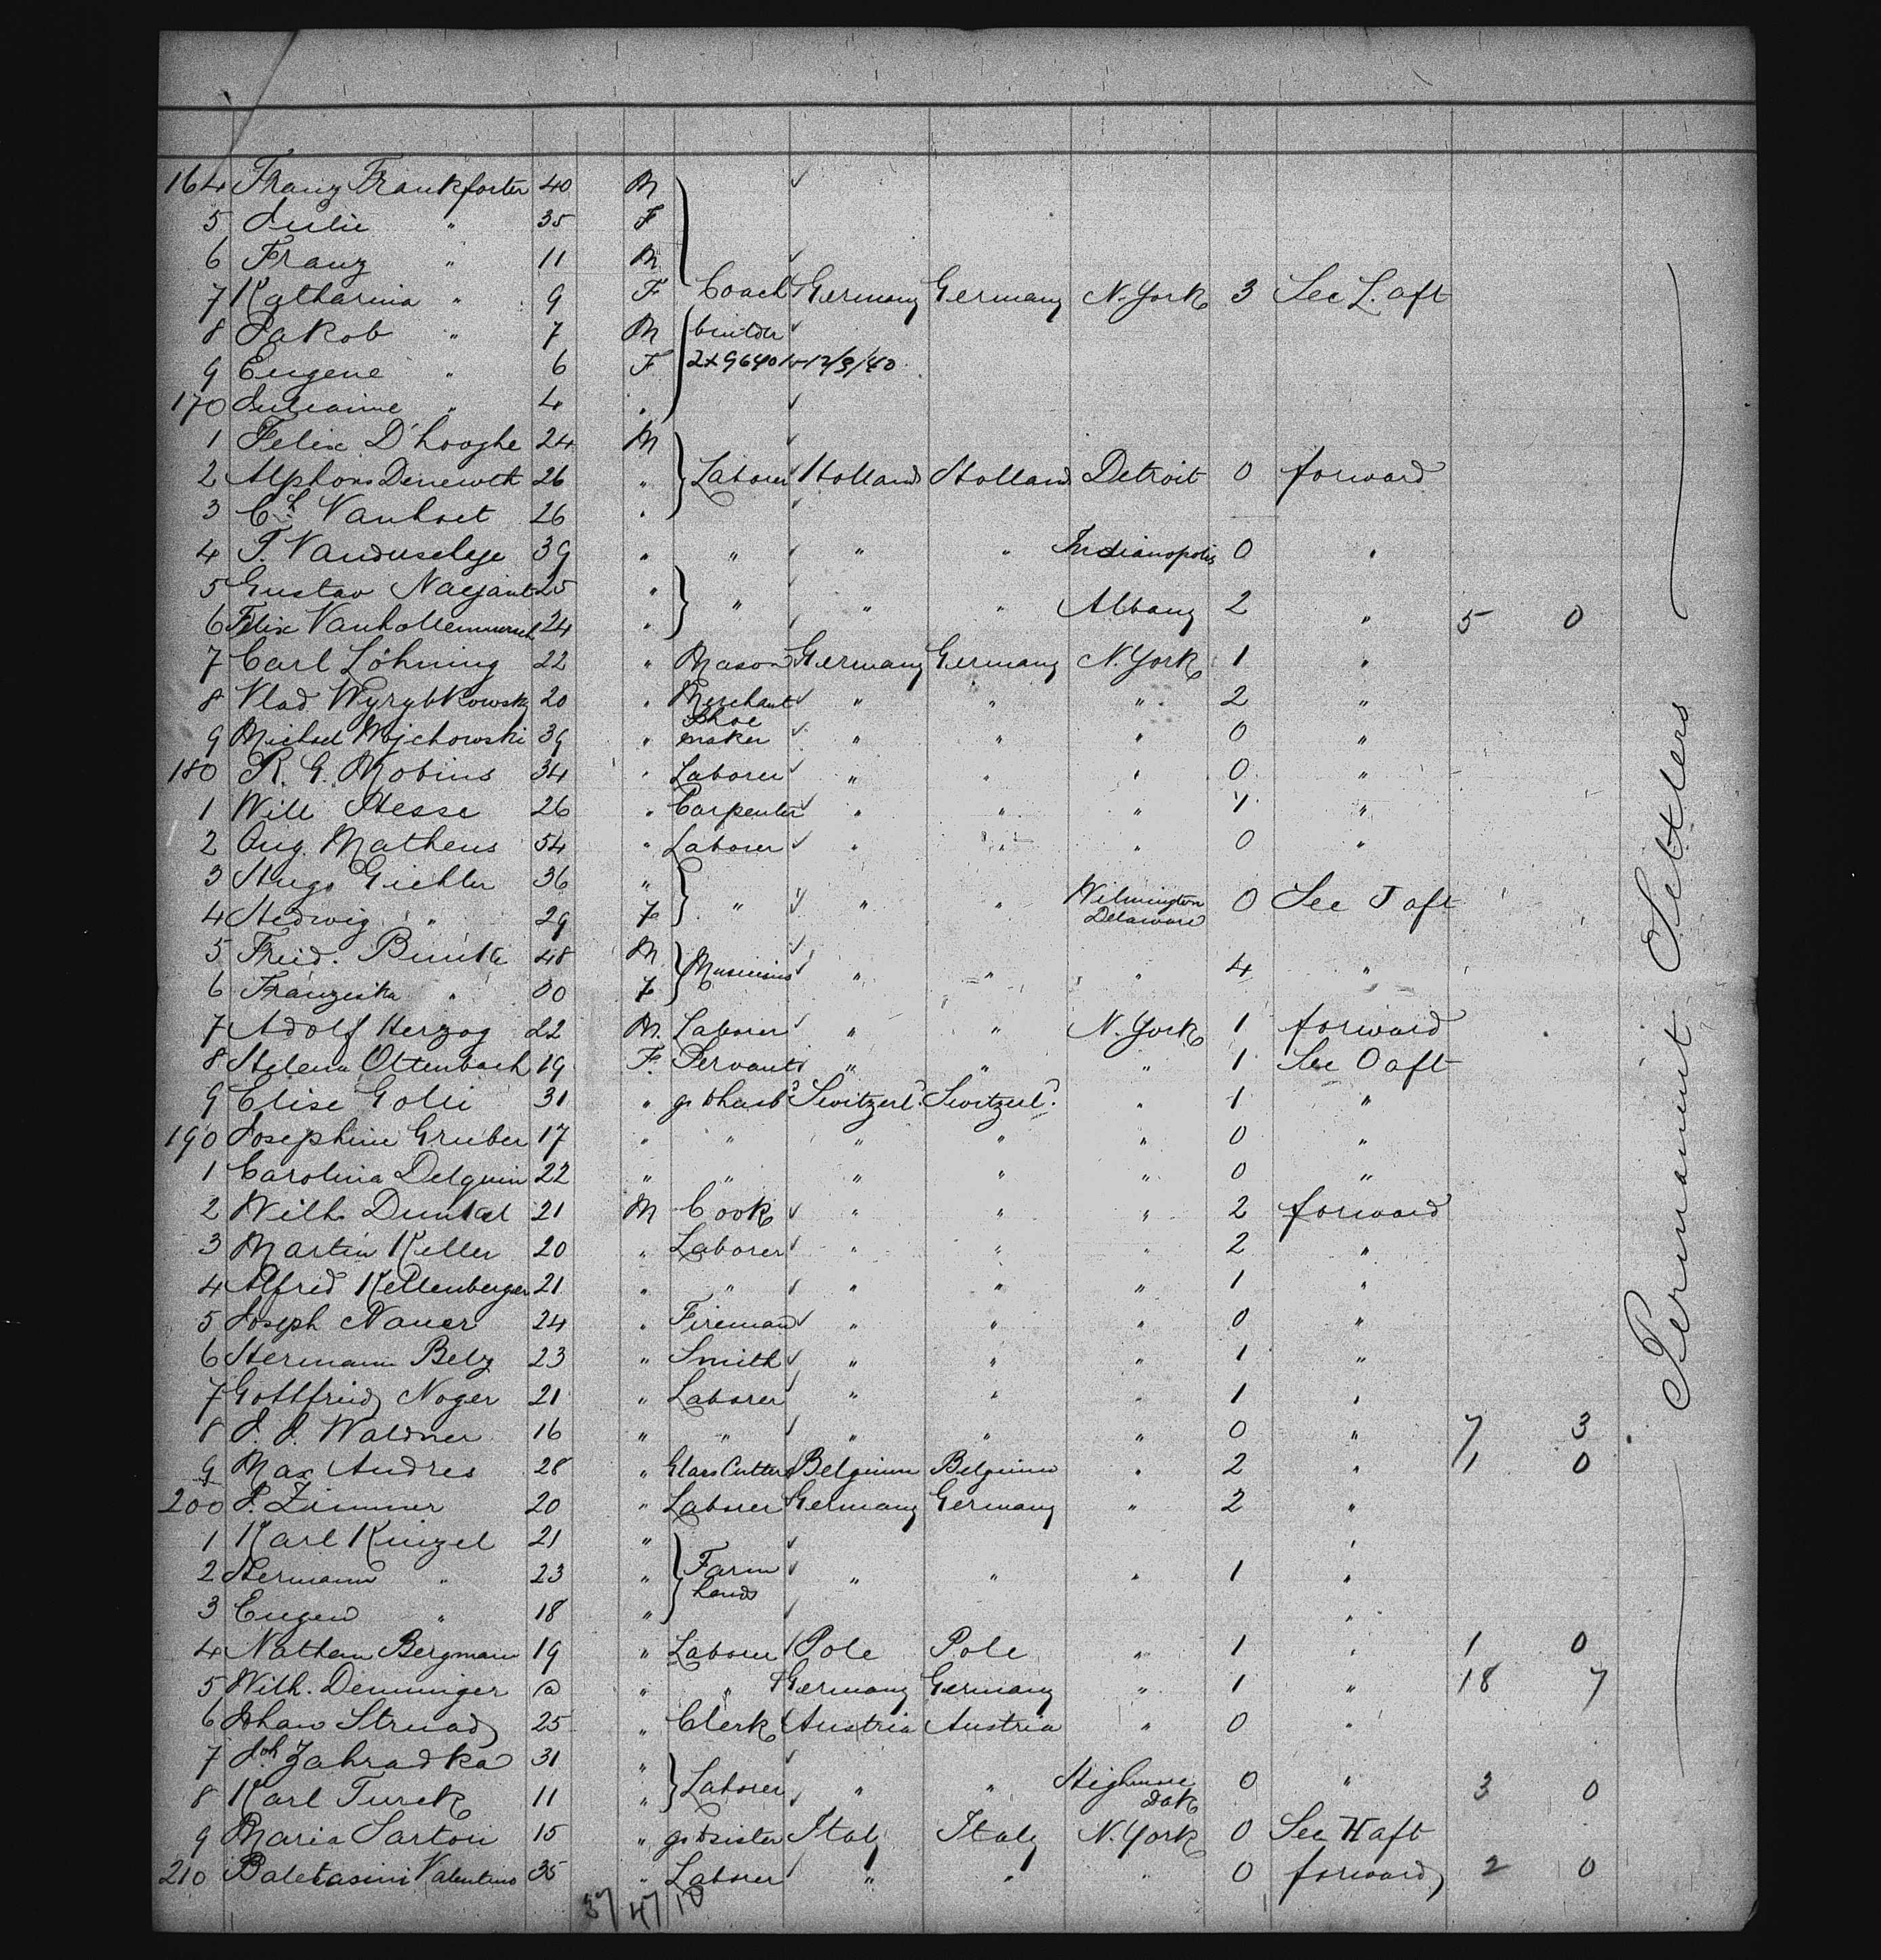 164 Franz Frankforter 40 M
5 Julie " 35 F
6 Franz " 11 M
7 Katharina " 9 F Coach Germany Germany N. York 3 Sec L. aft
8 Jakob " 7 M builder
9 Eugene " 6 F 2x96401-12/9/40
170 Julianne " 4 "
1 Felix D'hooghe 24 M
2 Alphons Deneweth 26 " Laborer Holland Holland Detroit 0 forward
3 Ch. Vanhoet 26 "
4 T. Vanduselye 39 " " " " Indianopolis 0 "
5 Gustav Naejant 25 "
" " " Albany 2
6 Felix 24 " " 5 0
7 Carl Löhning 22 " Mason Germany Germany N. York 1 "
8 Vlad Wyrybkowsky 20 " Merchant " " " 2 "
9 Michael Wojchowski 39 " Shoe maker " " " 0 "
180 R. G. Mobius 34 " Laborer " " " 0 "
1 Will Hesse 26 " Carpenter " " " 1 "
2 Aug. Matheus 54 " Laborer " " " 0 "
3 Hugo Giehler 36 "
4 Hedwig " 29 F " " " Wilmington Delaware 0 Sec J aft
5 Fried. 48 M
6 Franziska " 00 F Musicians " " " 4 "
7 Adolf Herzog 22 M Laborer " " N. York 1 forward
8 Helena Ottenbach 19 F. Servant " " " 1 Sec O aft
9 Elise Golli 31 " go t husbd Switzerld. Switzerld. " 1 "
190 Josephine Gruber 17 " " " " " 0 "
1 Carolina Delquin 22 " " " " " 0 "
2 Wilh. Dunkel 21 M Cook " " " 2 forward
3 Martin Keller 20 " Laborer " " " 2 "
4 Alfred Kellenberger 21 " " " " " 1 "
5 Joseph Nauer 24 " Fireman " " " 0 "
6 Hermann Belz 23 " Smith " " " 1 "
7 Gottfried Noger 21 " Laborer " " " 1 "
8 J. J. Waldner 16 " " " " " 0 " 7 3
9 Max Andres 28 " Glass Cutter Belgium Belgium " 2 " 1 0
200 P. Zimmer 20 " Laborer Germany Germany " 2 "
1 Karl Kinzel 21 " "
2 Hermann " 23 " Farm hands " " " 1 "
3 Eugen " 18 " "
4 Nathan Bergmann 19 " Laborer Pole Pole " 1 " 1 0
5 Wilh. Denninger " " Germany Germany " 1 " 18 7
6 Johan Strnad 25 " Clerk Austria Austria " 0 "
7 Joh. Zahradka 31 "
8 Karl Turek 11 " Laborer " " Highmore Dak 0 " 3 0
9 Maria Sartori 15 " go t sister Italy Italy N. York 0 Sec H aft
210 Valentino 35 " Laborer " " " 0 forward 2 0
37 47 10
Permanent Settlers